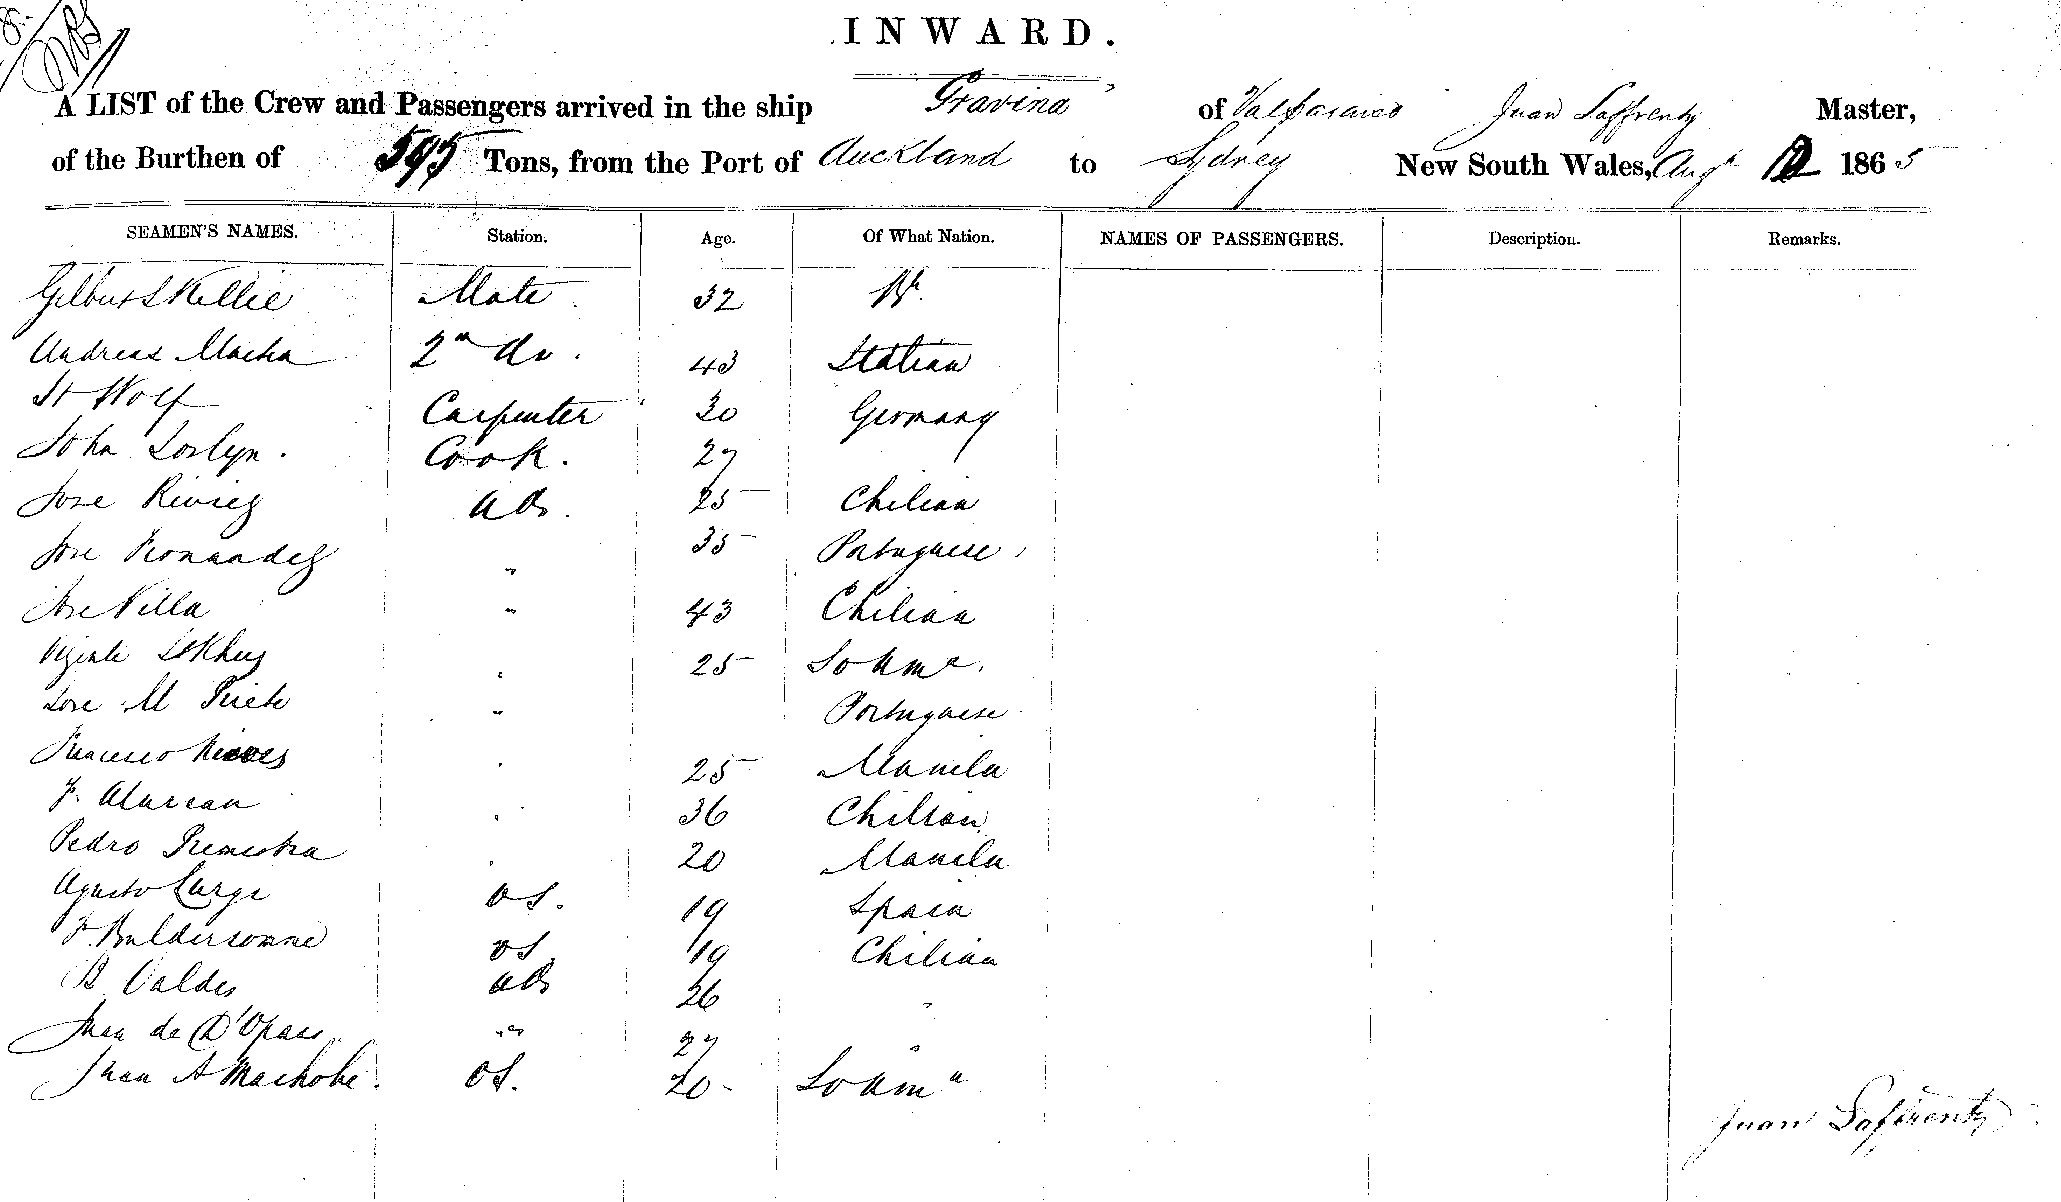 INWARD.
A LIST of the Crew and Passengers arrived in the ship Gravina of Valparaiso Juan Saffrenty Master,
of the Burthen of 595 Tons, from the Port of Auckland to Sydney New South Wales, Augt 12 1865
SEAMEN'S NAMES. Station. Age. Of What Nation. NAMES OF PASSENGERS. Description. Remarks.
Gilbert Kellie Mate 32 Br.
Andreas Macha 2nd do. 43 Italian
H Wolf Carpenter 30 Germany
John Loslyn. Cook. 27
Jose AB. 25 Chilian
Jose Fernandez " 35 Portuguese
Jose Villa " 43 Chilian
25 So Ama.
Jose M " Portuguese
Francisco 25 Manila
F. Alarcan 36 Chilian
Pedro 20 Manila
Agusto Large OS. 19 Spain
F. Baldersomne OS 19 Chilian
B Valdes AB 26 "
Juan de D'Opaes " 27 "
Juan A Machobe. OS. 20 So Ama
Juan Saffrenty